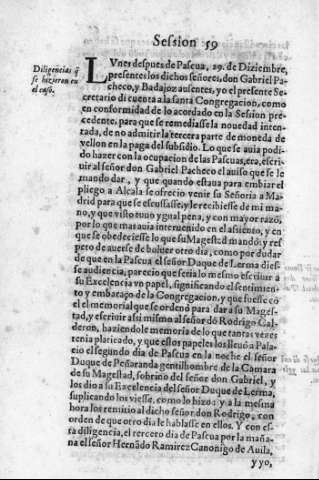 Session 59
Diligencias q̃
se hizieron en
el caso.
LVnes despues de Pascua, 29. de Diziembre,
presentes los dichos señores, don Gabriel Pa-
checo, y Badajoz ausentes, yo el presente Se-
cretario di cuenta a la santa Congregacion, como
en conformidad de lo acordado en la Session pre
cedente, para que se remediasse la nouedad inten-
tada, de no admitir la tercera parte de moneda de
vellon en la paga del subsidio. Lo que se auia podi
do hazer con la ocupacion de las Pascuas, era, escri-
uir al señor don Gabriel Pacheco el auiso que se le
mando dar, y que quando estaua para embiar el
pliego a Alcala se ofrecio venir su Señoria a Ma-
drid para que se escusasse, y le recibiesse de mi ma-
no, y que visto tuuo ygual pena, y con mayor razō,
por lo que auia interuenido en el asiento, y en
que se obedeciesse lo que su Magestad mandò: y res
pero de auerse de boluer otro dia, como por dudar
de que en la Pascua el señor Duque de Lerma dies-
se audiencia, parecio que seria lo mesmo escriuir a
su Excelencia vn papel, significando el sentimien-
to y embaraço de la Congregacion, y que fuesse cō
el el memorial que se ordenò para dar a su Mages-
tad, y escriuir assi mismo al señor dō Rodrigo Cal-
deron, haziendole memoria de lo que tantas vezes
tenia platicado, y que estos papeles los lleuò a Pala-
cio el segundo dia de Pascua en la noche el señor
Duque de Peñaranda gentilhombre de la Camara
de su Magestad, sobrino del señor don Gabriel, y
los dio a su Excelencia del señor Duque de Lerma,
suplicando los viesse, como lo hizo: y a la mesma
hora los remitio al dicho señor don Rodrigo, con
orden de que otro dia le hablasse en ellos. Y con es-
ta diligencia, el tercero dia de Pascua por la maña-
na el señor Hernãdo Ramirez Canonigo de Auila,
y yo,